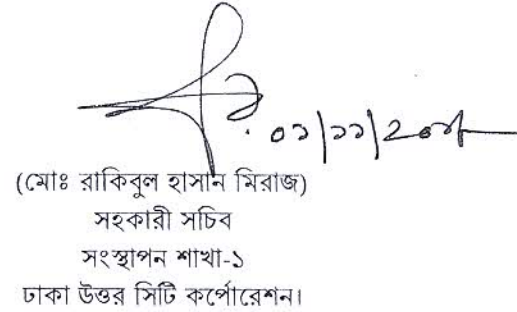 ০১/১১/২০১৮
(মোঃ রাকিবুল হাসান মিরাজ)
সহকারী সচিব
সংস্থাপন শাখা-১
ঢাকা উত্তর সিটি কর্পোরেশন।